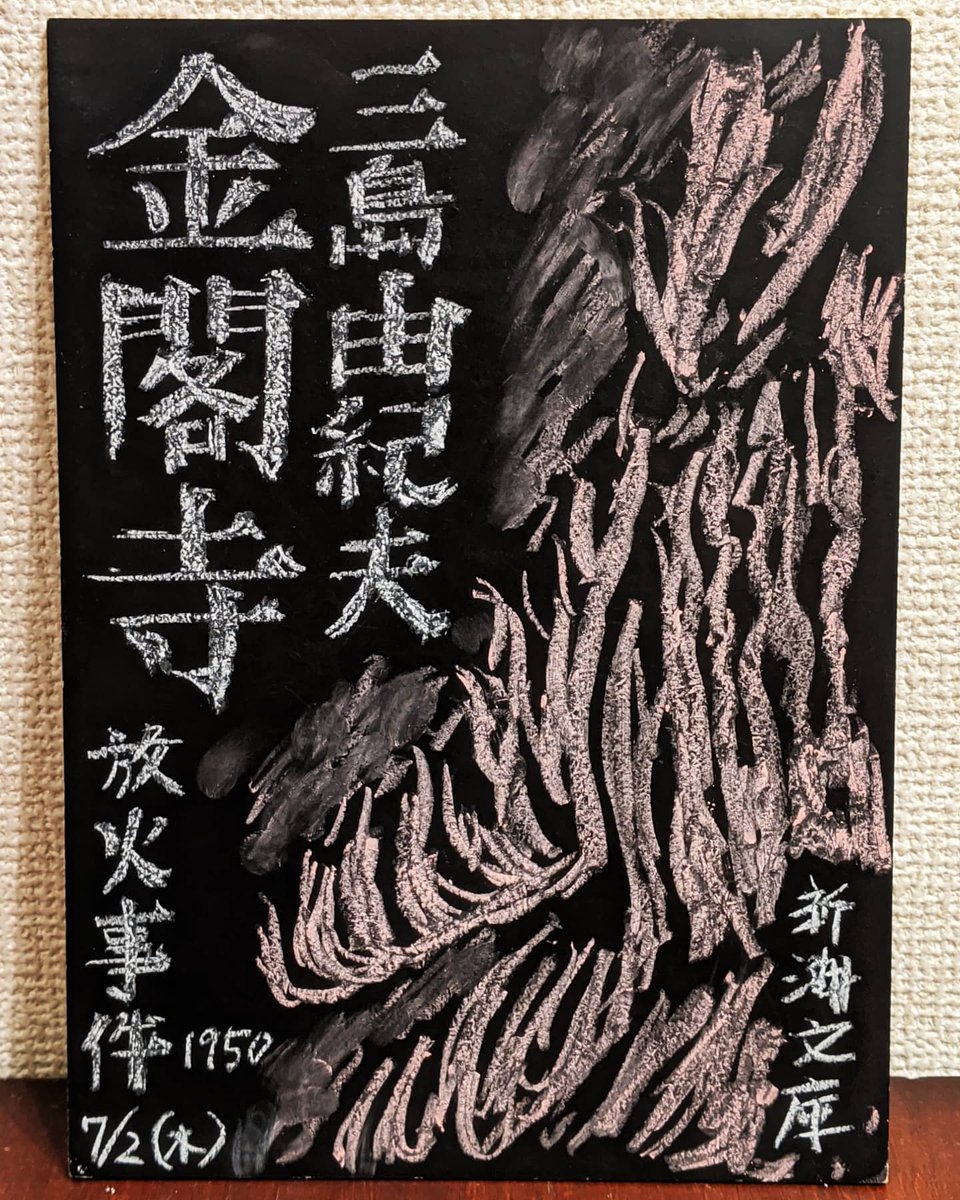 三島由紀夫
金閣寺
放火事件
1950
7/2(木)
新潮文庫